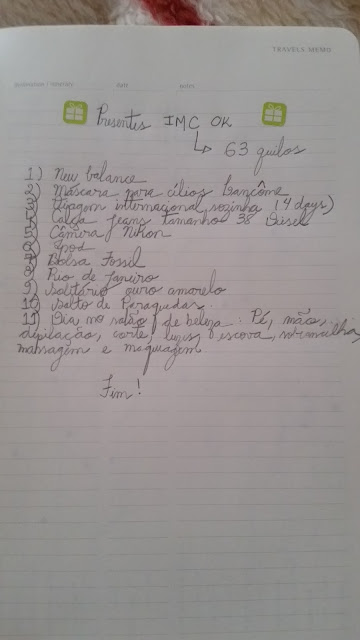 TRAVELS MEMO
DESTINATION / ITINERARY DATE NOTES
Presentes IMC OK
63 quilos
1) New balance
2) Máscara para cílios Lancôme
3) Viagem internacional sozinha (4 days)
4) Calça jeans tamanho 38 Diesel
5) Câmera Nikon
6) Ipod
7) Bolsa Fossil
8) Rio de Janeiro
9) Solitário ouro amarelo
10) Salto de Paraquedas
11) Dia no salão de beleza: Pé, mão,
depilação, corte, luzes, escova, sobrancelha,
massagem e maquiagem.
Fim!